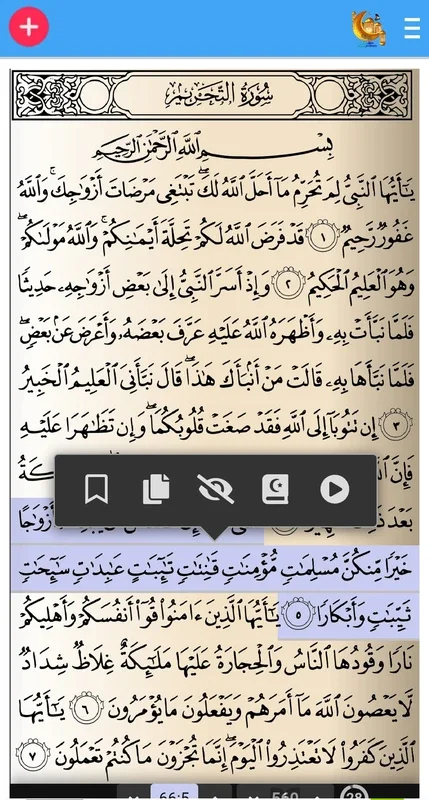 سُورَةُ التَّحْرِيمِ
بِسْمِ ٱللَّهِ ٱلرَّحْمَٰنِ ٱلرَّحِيمِ
يَٰٓأَيُّهَا ٱلنَّبِىُّ لِمَ تُحَرِّمُ مَآ أَحَلَّ ٱللَّهُ لَكَ ۖ تَبْتَغِى مَرْضَاتَ أَزْوَٰجِكَ ۚ وَٱللَّهُ
غَفُورٌ رَّحِيمٌ ١ قَدْ فَرَضَ ٱللَّهُ لَكُمْ تَحِلَّةَ أَيْمَٰنِكُمْ ۚ وَٱللَّهُ مَوْلَىٰكُمْ ۖ
وَهُوَ ٱلْعَلِيمُ ٱلْحَكِيمُ ٢ وَإِذْ أَسَرَّ ٱلنَّبِىُّ إِلَىٰ بَعْضِ أَزْوَٰجِهِۦ حَدِيثًا
فَلَمَّا نَبَّأَتْ بِهِۦ وَأَظْهَرَهُ ٱللَّهُ عَلَيْهِ عَرَّفَ بَعْضَهُۥ وَأَعْرَضَ عَنۢ بَعْضٍ ۖ
فَلَمَّا نَبَّأَهَا بِهِۦ قَالَتْ مَنْ أَنۢبَأَكَ هَٰذَا ۖ قَالَ نَبَّأَنِىَ ٱلْعَلِيمُ ٱلْخَبِيرُ
٣ إِن تَتُوبَآ إِلَى ٱللَّهِ فَقَدْ صَغَتْ قُلُوبُكُمَا ۖ وَإِن تَظَٰهَرَا عَلَيْهِ
فَإِنَّ
بَعْدَ أَزْوَٰجًا
خَيْرًا مِّنكُنَّ مُسْلِمَٰتٍ مُّؤْمِنَٰتٍ قَٰنِتَٰتٍ تَٰٓئِبَٰتٍ عَٰبِدَٰتٍ سَٰٓئِحَٰتٍ
ثَيِّبَٰتٍ وَأَبْكَارًا ٥ يَٰٓأَيُّهَا ٱلَّذِينَ ءَامَنُوا۟ قُوٓا۟ أَنفُسَكُمْ وَأَهْلِيكُمْ
نَارًا وَقُودُهَا ٱلنَّاسُ وَٱلْحِجَارَةُ عَلَيْهَا مَلَٰٓئِكَةٌ غِلَاظٌ شِدَادٌ
لَّا يَعْصُونَ ٱللَّهَ مَآ أَمَرَهُمْ وَيَفْعَلُونَ مَا يُؤْمَرُونَ ٦ يَٰٓأَيُّهَا
ٱلَّذِينَ كَفَرُوا۟ لَا تَعْتَذِرُوا۟ ٱلْيَوْمَ ۖ إِنَّمَا تُجْزَوْنَ مَا كُنتُمْ تَعْمَلُونَ ٧
66:5 560 28